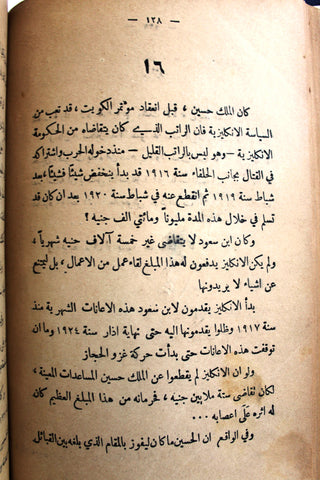 — ١٢٨ —
١٦
كان الملك حسين ، قبل انعقاد مؤتمر الكويت ، قد تعب من
السياسة الانكليزية فان الراتب الذي كان يتقاضاه من الحكومة
الانكليزية — وهو ليس بالراتب القليل — منذ دخوله الحرب واشتراكه
في القتال بجانب الحلفاء سنة ١٩١٦ قد بدأ ينخفض شيئاً فشيئاً، بعد
شباط سنة ١٩١٩ ثم انقطع عنه في شباط سنة ١٩٢٠ بعد ان كان قد
تسلم في خلال هذه المدة مليوناً ومائتي الف جنيه !
وكان ابن سعود لا يتقاضى غير خمسة آلاف جنيه شهرياً ،
ولم يكن الانكليز يدفعون له هذا المبلغ لقاء عمل من الاعمال ، بل ليمتنع
عن اشياء لا يريدونها
بدأ الانكليز يقدمون لابن سعود هذه الاعانات الشهرية منذ
١٩١٧ وظلوا يقدمونها اليه حتى نهاية اذار سنة ١٩٢٤ وما ان
توقفت هذه الاعانات حتى بدأت حركة غزو الحجاز
ولو ان الانكليز لم يقطعوا عن الملك حسين المساعدات المعينة ،
لكان تقاضى ستة ملايين جنيه ، فحرمانه من هذا المبلغ العظيم كان
له اثره على اعصابه ...
وفي الواقع ان الحسين ما كان ليفوز بالمقام الذي بلغه بين القبائل